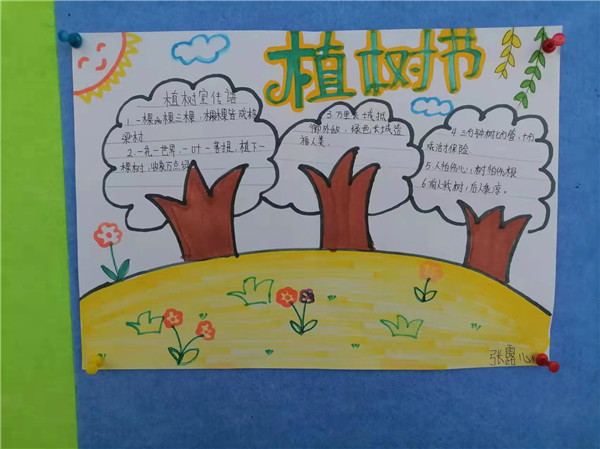 植树节
植树宣传语
1.一棵二棵三棵，棵棵皆成栋
梁材
2.一花一世界，一叶一菩提，植下一
棵树，收获万点绿
3.万里长城抵
御外敌，绿色长城造
福人类。
4.三分种树七分管，十分
成活才保险
5.人怕伤心，树怕伤根
6.前人栽树，后人乘凉。
张露心